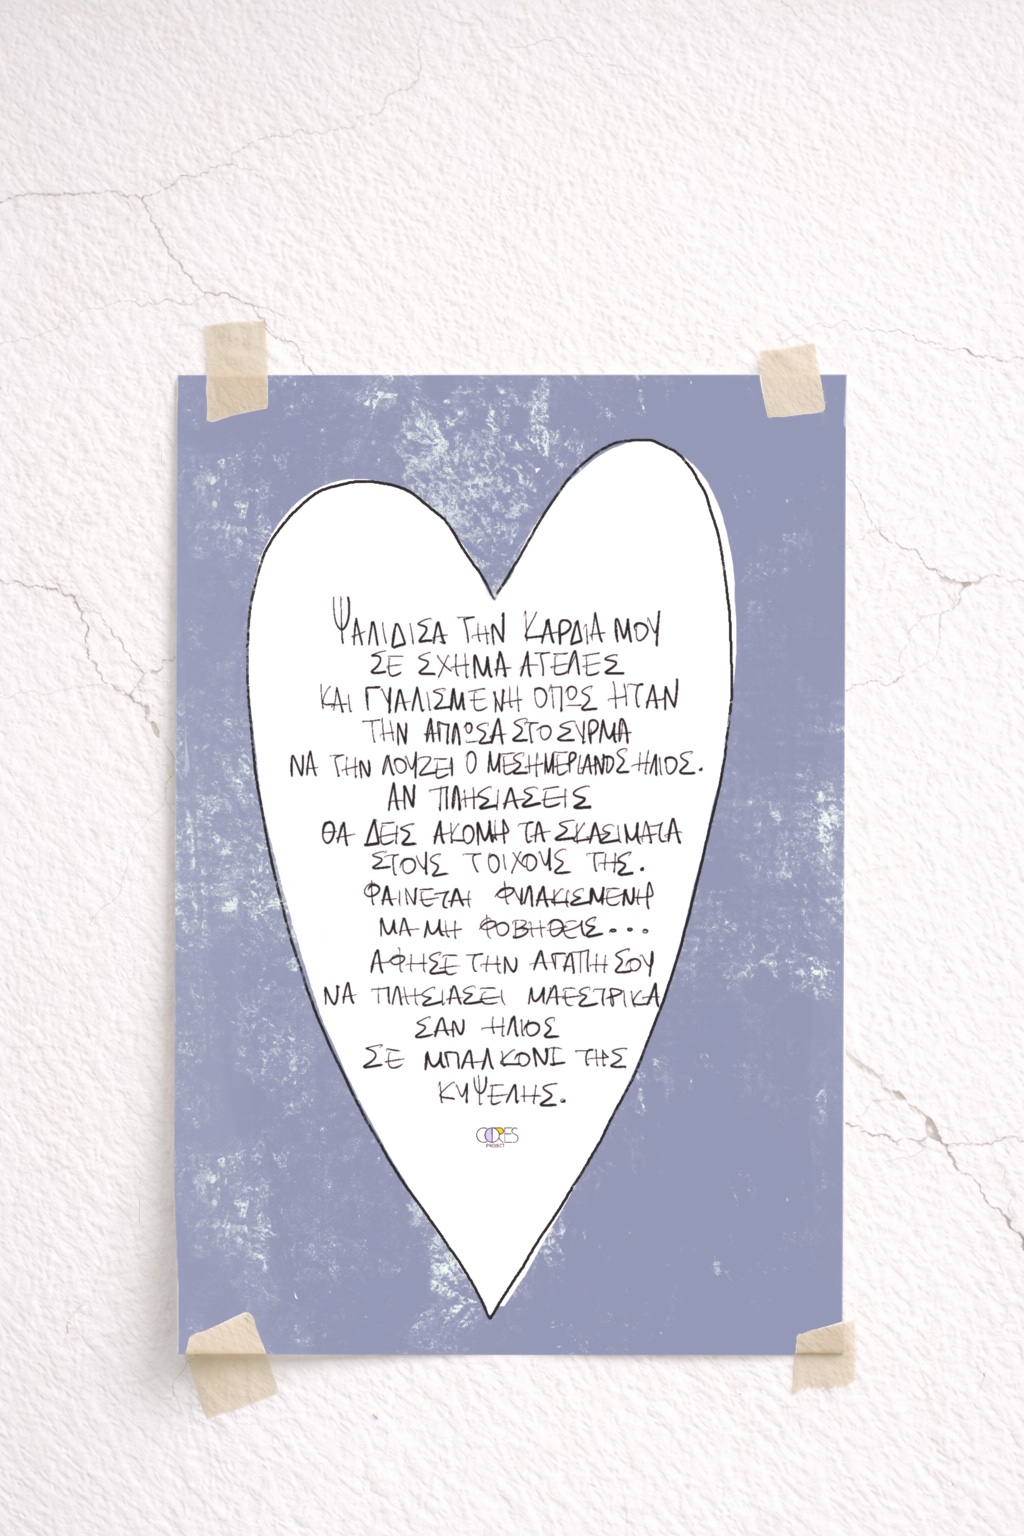 ΨΑΛΙΔΙΣΑ ΤΗΝ ΚΑΡΔΙΑ ΜΟΥ
ΣΕ ΣΧΗΜΑ ΑΤΕΛΕΣ
ΚΑΙ ΓΥΑΛΙΣΜΕΝΗ ΟΠΩΣ ΗΤΑΝ
ΤΗΝ ΑΠΛΩΣΑ ΣΤΟ ΣΥΡΜΑ
ΝΑ ΤΗΝ ΛΟΥΖΕΙ Ο ΜΕΣΗΜΕΡΙΑΝΟΣ ΗΛΙΟΣ.
ΑΝ ΠΛΗΣΙΑΣΕΙΣ
ΘΑ ΔΕΙΣ ΑΚΟΜΗ ΤΑ ΣΚΑΣΙΜΑΤΑ
ΣΤΟΥΣ ΤΟΙΧΟΥΣ ΤΗΣ.
ΦΑΙΝΕΤΑΙ ΦΥΛΑΚΙΣΜΕΝΗ
ΜΑ ΜΗ ΦΟΒΗΘΕΙΣ...
ΑΦΗΣΕ ΤΗΝ ΑΓΑΠΗ ΣΟΥ
ΝΑ ΠΛΗΣΙΑΣΕΙ ΜΑΕΣΤΡΙΚΑ
ΣΑΝ ΗΛΙΟΣ
ΣΕ ΜΠΑΛΚΟΝΙ ΤΗΣ
ΚΥΨΕΛΗΣ.
PROJECT